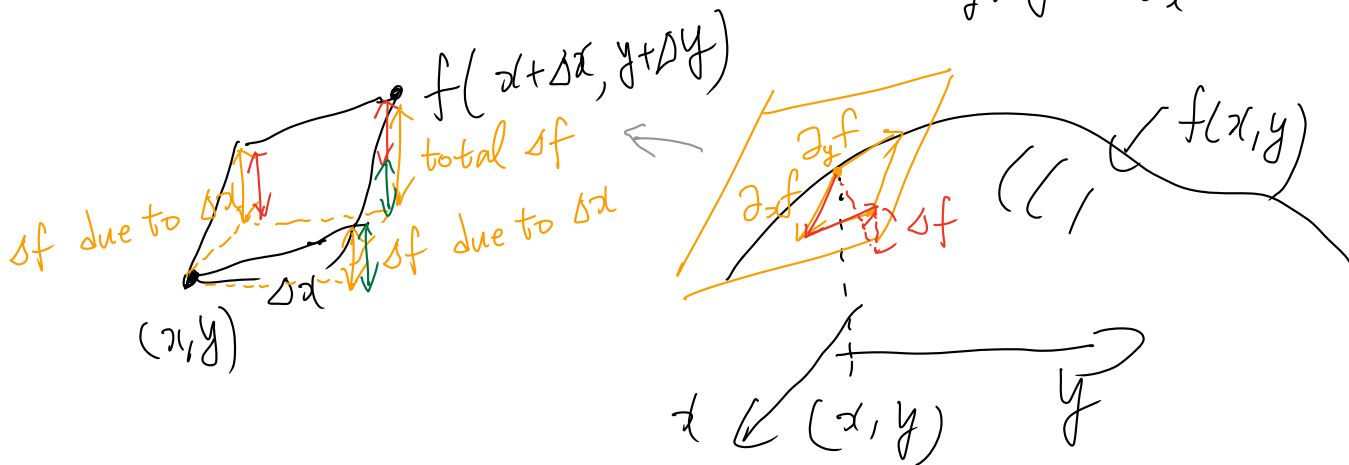 f(x+Δx, y+Δy)
total Δf
Δf due to Δx
Δf due to Δx
Δx
(x,y)
∂yf
∂xf
Δf
f(x,y)
x
(x,y)
y